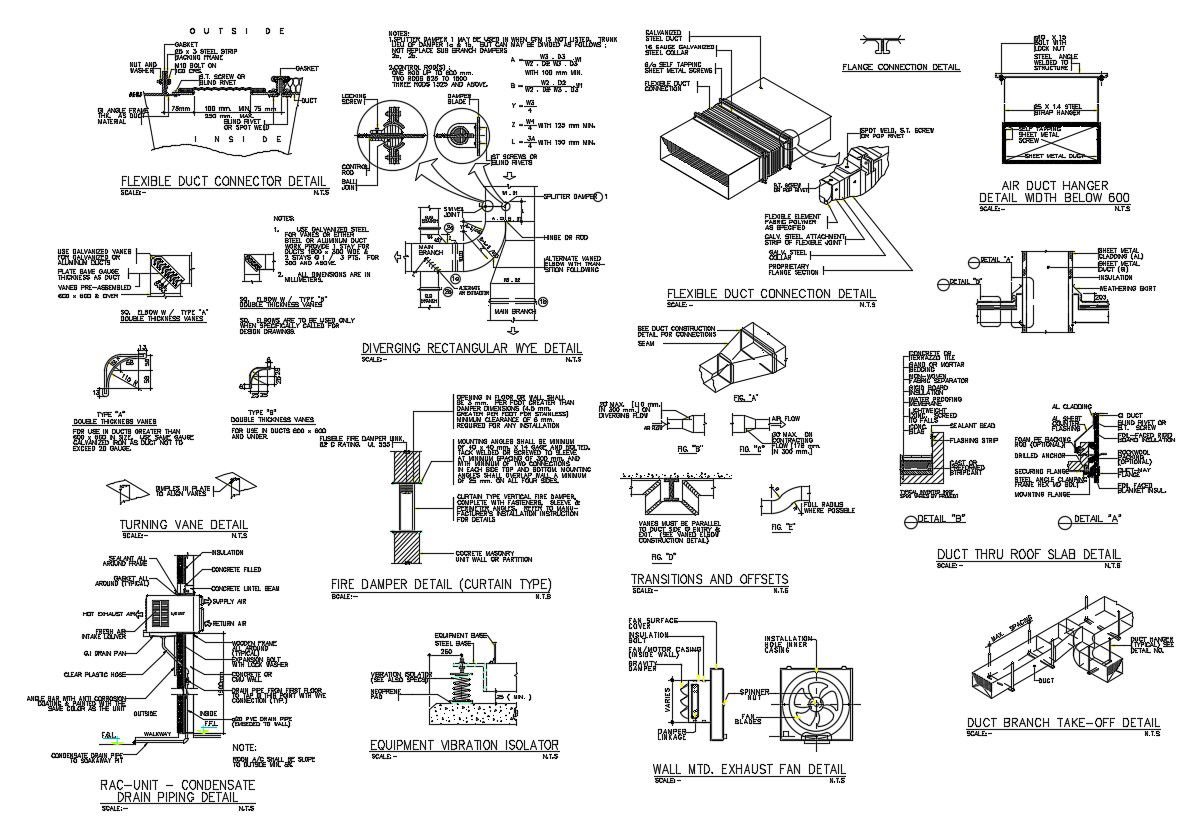 O U T S I D E
GASKET
25 x 3 STEEL STRIP
BACKING FRAME
NUT AND
WASHER
M10 BOLT ON
150 CRS.
S.T. SCREW OR
BLIND RIVET
GASKET
DUCT
GI ANGLE FRAME
THK. AS DUCT
MATERIAL
75mm
100 mm. MIN.
250 mm. MAX.
75 mm
BLIND RIVET
OR SPOT WELD
I N S I D E
FLEXIBLE DUCT CONNECTOR DETAIL
SCALE:-
N.T.S
NOTES:
1.SPLITTER DAMPER 1 MAY BE USED IN WHEN CFM IS NOT LISTED. TRUNK
LIEU OF DAMPER 1a & 1b, BUT CAN MAY BE DIVIDED AS FOLLOWS ;
NOT REPLACE SUB BRANCH DAMPERS
2a, 2b.
2.CONTROL ROD(S) :
ONE ROD UP TO 600 mm.
TWO RODS 625 TO 1300
THREE RODS 1325 AND ABOVE.
WITH 100 MM MIN.
WITH 125 mm MIN.
WITH 150 mm MIN.
LOCKING
SCREW
DAMPER
BLADE
CONTROL
ROD
BALL
JOINT
ST SCREWS OR
BLIND RIVETS
SPLITTER DAMPER 1
SWIVEL
JOINT
SUB
BRANCH
MAIN
BRANCH
HINGE OR ROD
ALTERNATE VANED
ELBOW WITH TRAN-
SITION FOLLOWING
ALTERNATE
AIR EXTRACTION
SUB
BRANCH
MAIN BRANCH
DIVERGING RECTANGULAR WYE DETAIL
SCALE:-
N.T.S
GALVANIZED
STEEL DUCT
16 GAUGE GALVANIZED
STEEL COLLAR
S/O SELF TAPPING
SHEET METAL SCREWS
FLEXIBLE DUCT
CONNECTION
FLANGE CONNECTION DETAIL
SPOT WELD, S.T. SCREW
OR POP RIVET
S.T. SCREW
OR POP RIVET
FLEXIBLE ELEMENT
FABRIC POLYMER
AS SPECIFIED
GALV. STEEL ATTACHMENT
STRIP OF FLEXIBLE JOINT
GALV. STEEL
COLLAR
PROPRIETARY
FLANGE SECTION
FLEXIBLE DUCT CONNECTION DETAIL
SCALE:-
N.T.S
BOLT WITH
LOCK NUT
STEEL ANGLE
WELDED TO
STRUCTURE
25 X 1.4 STEEL
STRAP HANGER
SELF TAPPING
SHEET METAL
SCREW
SHEET METAL DUCT
AIR DUCT HANGER
DETAIL WIDTH BELOW 600
SCALE:-
N.T.S
USE GALVANIZED VANES
FOR GALVANIZED OR
ALUMINUM DUCTS
PLATE SAME GAUGE
THICKNESS AS DUCT
VANES PRE-ASSEMBLED
600 x 600 & OVER
SQ. ELBOW W/ TYPE "A"
DOUBLE THICKNESS VANES
NOTES:
1. USE GALVANIZED STEEL
FOR VANES OR EITHER
STEEL OR ALUMINUM DUCT
WORK PROVIDE 1 STAY FOR
DUCTS 1200 x 300 WIDE &
2 STAYS @ 1 / 3 PTS. FOR
300 AND ABOVE.
2. ALL DIMENSIONS ARE IN
MILLIMETERS.
SQ. ELBOW W/ TYPE "B"
DOUBLE THICKNESS VANES
SQ. ELBOWS ARE TO BE USED ONLY
WHEN SPECIFICALLY CALLED FOR
DESIGN DRAWINGS.
TYPE "A"
DOUBLE THICKNESS VANES
FOR USE IN DUCTS GREATER THAN
600 x 600 IN SIZE. USE SAME GAUGE
GALVANIZED IRON AS DUCT NOT TO
EXCEED 20 GAUGE.
TYPE "B"
DOUBLE THICKNESS VANES
FOR USE IN DUCTS 600 x 600
AND UNDER.
DIMPLES IN PLATE
TO ALIGN VANES
TURNING VANE DETAIL
SCALE:-
N.T.S
OPENING IN FLOOR OR WALL SHALL
BE 3 mm. PER FOOT GREATER THAN
DAMPER DIMENSIONS (4.5 mm.
GREATER PER FOOT FOR STAINLESS)
MINIMUM CLEARANCE OF 6 mm.
REQUIRED FOR ANY INSTALLATION
FUSIBLE FIRE DAMPER LINK,
MOUNTING ANGLES SHALL BE MINIMUM
OF 40 x 40 mm. x 14 GAGE AND BOLTED,
TACK WELDED OR SCREWED TO SLEEVE
AT MINIMUM SPACING OF 300 mm. AND
WITH MINIMUM OF TWO CONNECTIONS
IN EACH SIDE TOP AND BOTTOM. MOUNTING
ANGLES SHALL OVERLAP WALL A MINIMUM
OF 25 mm. ON ALL FOUR SIDES.
CURTAIN TYPE VERTICAL FIRE DAMPER,
COMPLETE WITH FASTENERS, SLEEVE &
PERIMETER ANGLES. REFER TO MANU-
FACTURER'S INSTALLATION INSTRUCTION
FOR DETAILS
COCRETE MASONRY
UNIT WALL OR PARTITION
FIRE DAMPER DETAIL (CURTAIN TYPE)
SCALE:-
N.T.S
SEE DUCT CONSTRUCTION
DETAIL FOR CONNECTIONS
SEAM
FIG. "A"
DIVERGING FLOW
AIR FLOW
FIG. "B"
AIR FLOW
CONTRACTING
FLOW
FIG. "C"
VANES MUST BE PARALLEL
TO DUCT SIDE @ ENTRY &
EXIT. (SEE VANED ELBOW
CONSTRUCTION DETAIL)
FIG. "D"
FULL RADIUS
WHERE POSSIBLE
FIG. "E"
TRANSITIONS AND OFFSETS
SCALE:-
N.T.S
DETAIL "A"
DETAIL "B"
SHEET METAL
CLADDING (AL)
SHEET METAL
DUCT (GI)
INSULATION
WEATHERING SKIRT
203
CONCRETE OR
TERRAZZO TILE
SAND OR MORTAR
BEDDING
NON-WOVEN
FABRIC SEPARATOR
INSULATION
WATER PROOFING
MEMBRANE
LIGHTWEIGHT
CONC. SCREED
TO FALLS
SEALANT BEAD
FLASHING STRIP
DETAIL "B"
AL CLADDING
AL SHEET
COUNTER
FLASHING
FOAM PE BACKING
ROD (OPTIONAL)
DRILLED ANCHOR
SECURING FLANGE
STEEL ANGLE CLAMPING
MOUNTING FLANGE
GI DUCT
BLIND RIVET OR
S.T. SCREW
ROCKWOOL
(OPTIONAL)
FLANGE
FOIL FACED
BLANKET INSUL.
DETAIL "A"
DUCT THRU ROOF SLAB DETAIL
SCALE:-
N.T.S
SEALANT ALL
AROUND FRAME
GASKET ALL
AROUND (TYPICAL)
HOT EXHAUST AIR
FRESH AIR
INTAKE LOUVER
G.I DRAIN PAN
CLEAR PLASTIC HOSE
ANGLE BAR WITH ANTI CORROSION
COATING & PAINTED WITH THE
SAME COLOR AS THE UNIT
OUTSIDE
INSIDE
F.G.L
F.F.L
WALKWAY
CONDENSATE DRAIN PIPE
TO SOAKAWAY PIT
INSULATION
CONCRETE FILLED
CONCRETE LINTEL BEAM
SUPPLY AIR
RETURN AIR
WOODEN FRAME
ALL AROUND
(TYPICAL)
EXPANSION BOLT
WITH LOCK WASHER
CONCRETE OR
CMU WALL
DRAIN PIPE FROM FIRST FLOOR
TO TAP @ THIS POINT WITH WYE
CONNECTION (TYP.)
PVC DRAIN PIPE
(EMBEDED TO WALL)
NOTE:
ROOM A/C SHALL BE SLOPE
TO OUTSIDE
RAC-UNIT - CONDENSATE
DRAIN PIPING DETAIL
SCALE:-
N.T.S
EQUIPMENT BASE
STEEL BASE
250
VIBRATION ISOLATOR
(SEE ALSO SPECS)
NEOPRENE
PAD
25 ( MIN. )
EQUIPMENT VIBRATION ISOLATOR
SCALE:-
N.T.S
FAN SURFACE
COVER
INSULATION
BOLT
FAN/MOTOR CASING
(INSIDE WALL)
GRAVITY
DAMPER
VARIES
DAMPER
LINKAGE
INSTALLATION
HOLE INNER
CASING
SPINNER
NUT
FAN
BLADES
WALL MTD. EXHAUST FAN DETAIL
SCALE:-
N.T.S
MAX. SPACING
DUCT
DUCT HANGER
(TYPICAL) SEE
DETAIL NO.
DUCT BRANCH TAKE-OFF DETAIL
SCALE:-
N.T.S